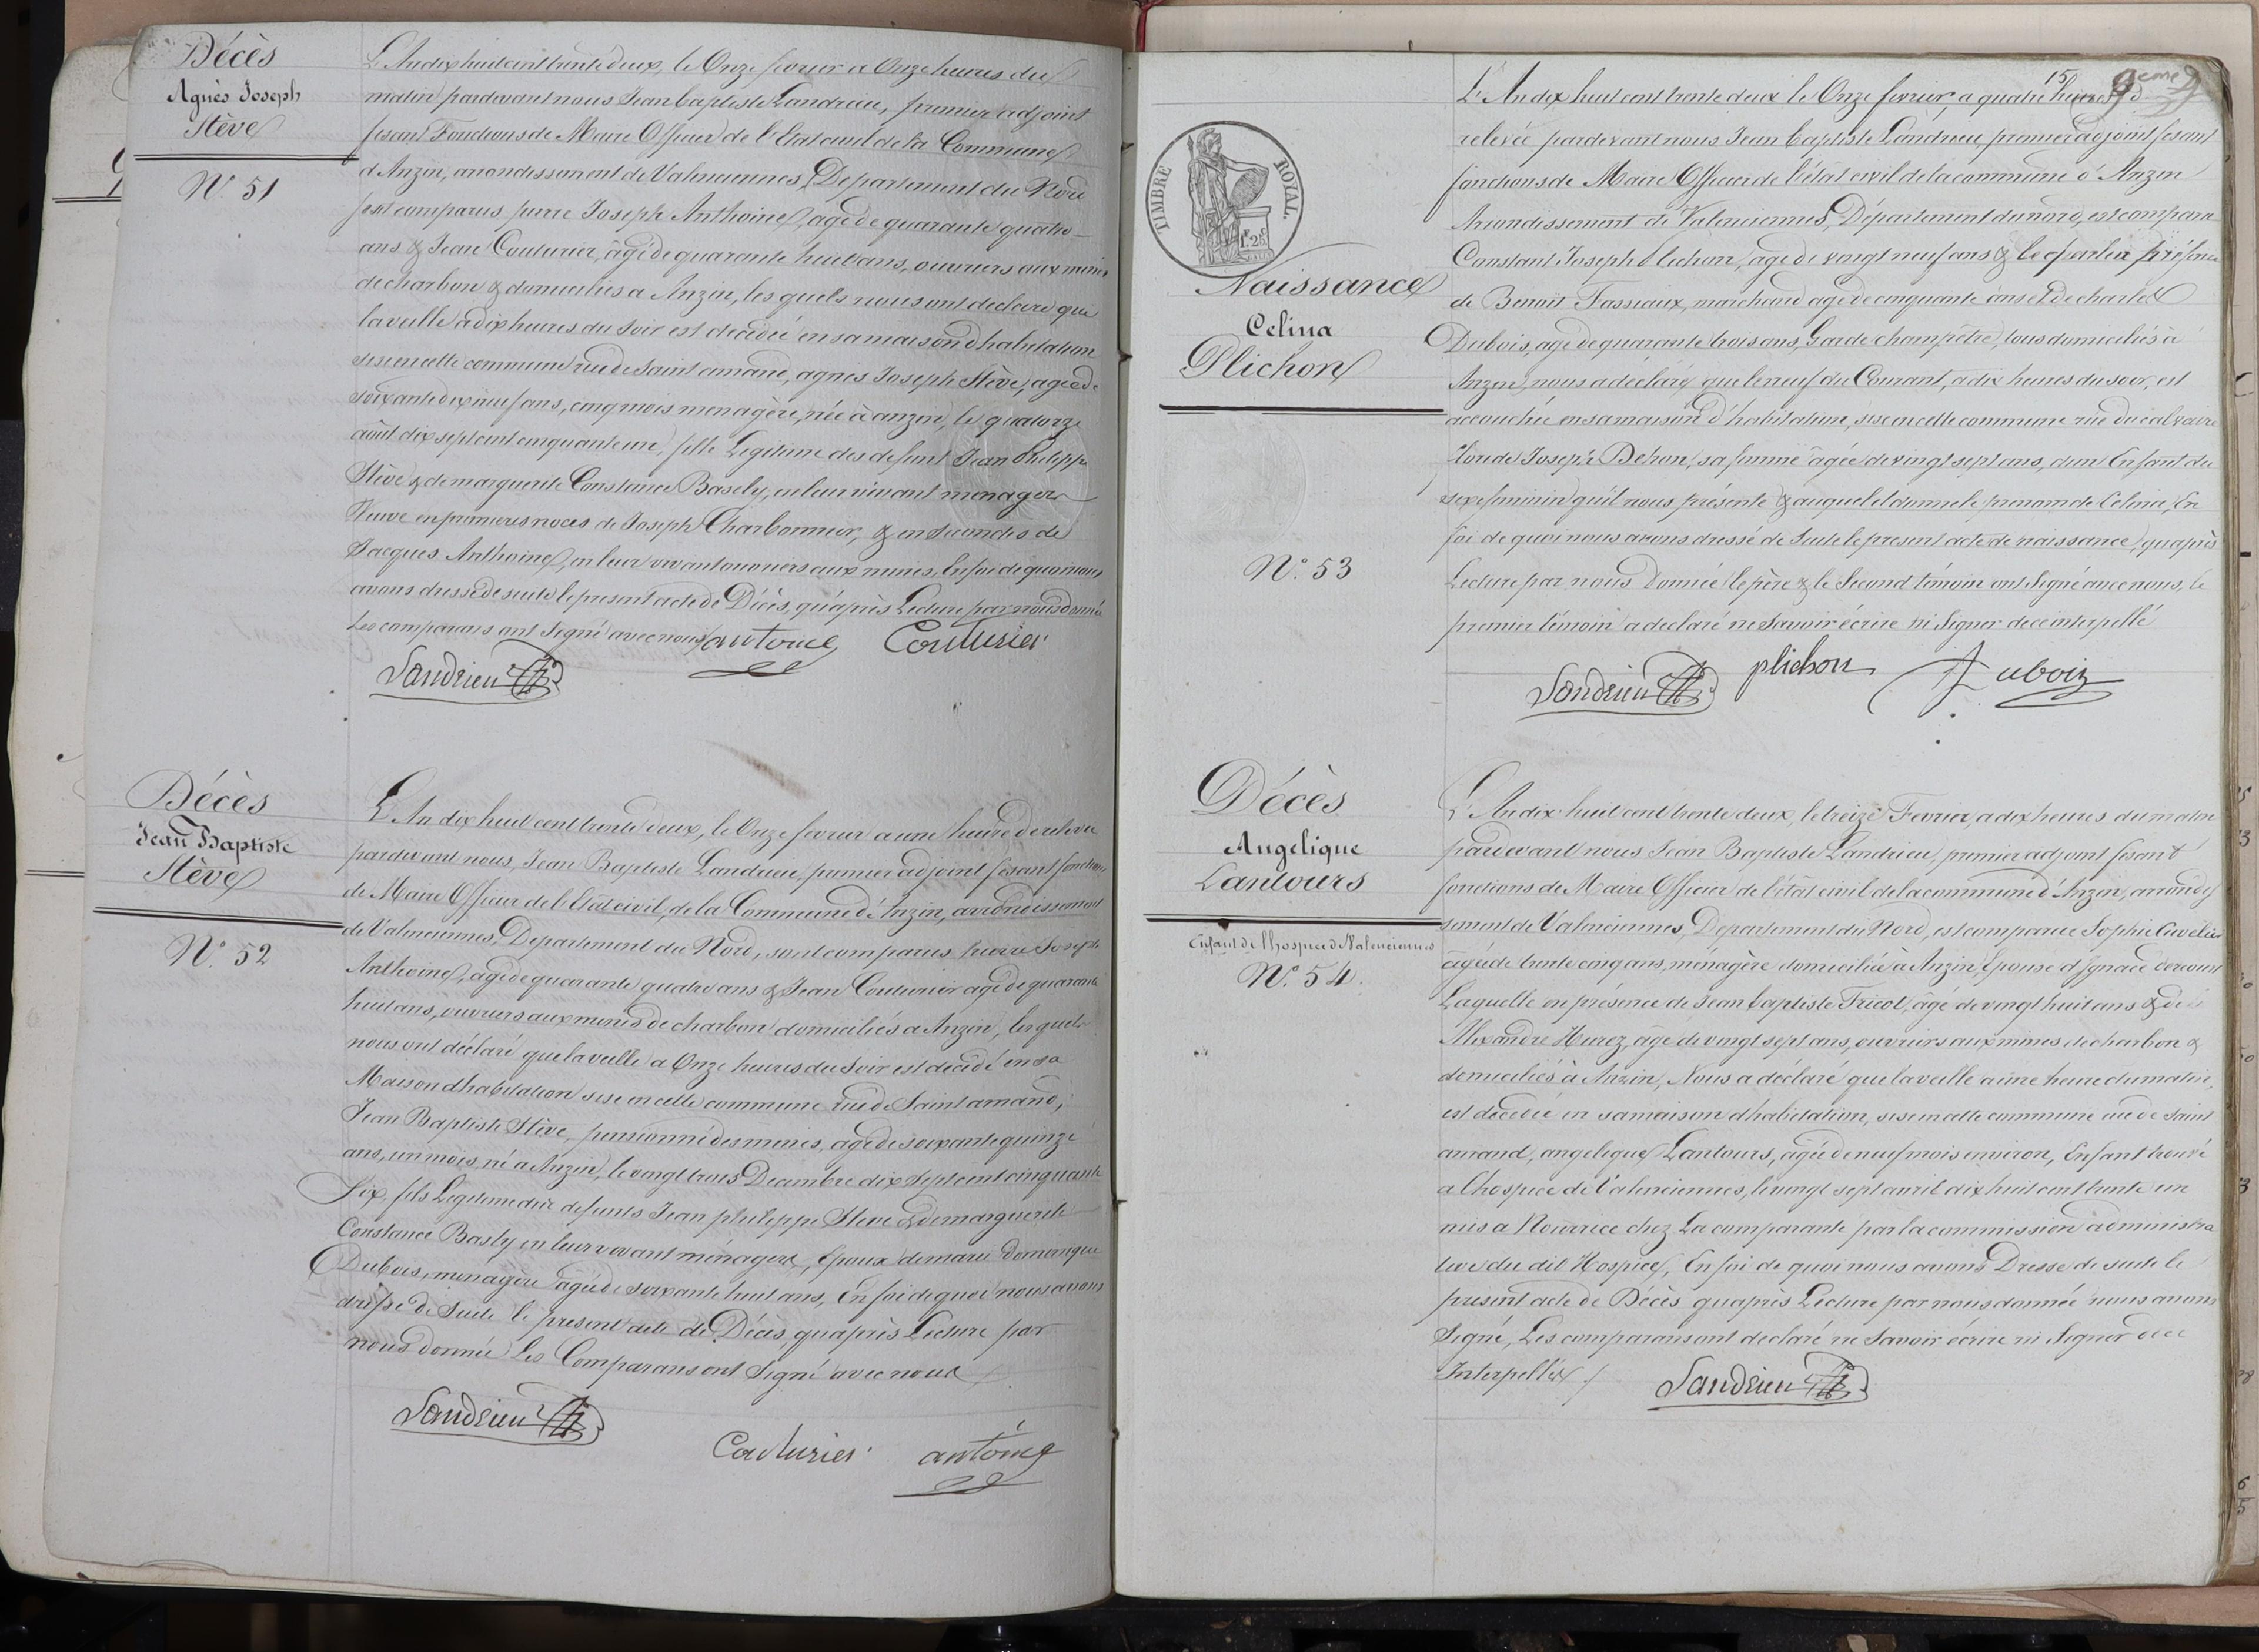 Décès
Agnès Joseph
Stève
N.° 51
L'An dix huit cent trente deux, le Onze fevrier a Onze heures du
matin pardevant nous Jean baptiste Landrieu, premier adjoint
fesant Fonctions de Maire Officier de l'Etat civil de la Commune
d'Anzin, arrondissement de Valenciennes, Departement du Nord
sont comparus pierre Joseph Anthoine, agé de quarante quatre
ans & Jean Couturier, âgé de quarante huit ans, ouvriers aux mines
de charbon & domiciliés a Anzin, les quels nous ont declaré que
la veille a dix heures du soir est decédée en sa maison d'habitation
sise en cette commune rue de Saint amand, agnes Joseph Stève, agée de
soixante dix neuf ans, cinq mois menagère, née à anzin, le quatorze
août dix sept cent cinquante un, fille Legitime des defunt Jean Philippe
Stève & de marguerite Constance Basely, en leur vivant menagers
Veuve en premieres noces de Joseph Charbonnier, & en secondes de
Jacques Anthoine, en leur vivant ouvriers aux mines, En foi de quoi nous
avons dressé de suite le present acte de Décès, qu'après Lecture par nous donnée
Les comparans ont signé avec nous antoine Couturier
Landrieu
Décès
Jean Baptiste
Stève
N.° 52
L'An dix huit cent trente deux, le Onze fevrier a une heure de relevee
pardevant nous, Jean Baptiste Landrieu, premier adjoint fesant fonctions
de Maire Officier de l'Etat civil, de la Commune d'Anzin, arrondissement
de Valenciennes, Departement du Nord, sont comparus, pierre Joseph
Anthoine, agé de quarante quatre ans & Jean Couturier agé de quarante
huit ans, ouvriers aux mines de charbon domiciliés a Anzin, lesquels
nous ont déclaré que la veille a Onze heures du soir est decédé en sa
Maison d'habitation sise en cette commune rue de Saint amand,
Jean Baptiste Stève, pensionné des mines, âgé de soixante quinze
ans, un mois, né a Anzin, le vingt trois Decembre dix sept cent cinquante
Six, fils Legitime de defunts Jean philippe Steve & de marguerite
Constance Basly en leur vivant ménagers, Epoux de marie domanique
Dubois, menagère âgée de soixante huit ans, En foi de quoi nous avons
dressé de suite le present acte de Décès, qu'après Lecture par
nous donnée Les Comparans ont signé avec nous
Landrieu
Couturier antoine
15 9eme
TIMBRE ROYAL.
1F. 25c
Naissance
Celina
Plichon
N.° 53
L'An dix huit cent trente deux le Onze fevrier, a quatre heures d
relevée pardevant nous Jean baptiste Landrieu, premier adjoint fesant
fonctions de Maire Officier de l'état civil de la commune d'Anzin
Arrondissement de Valenciennes, Département du nord, est comparu
Constant Joseph Plichon, âgé de vingt neuf ans &
de Benoit Fassiaux, marchand agé de cinquante ans & de charles
Dubois, agé de quarante trois ans, Garde champêtre, tous domiciliés à
Anzin, nous a déclaré que le neuf du Courant, a dix heures du soir, est
accouchée en sa maison d'habitation, sise en cette commune rue du calvaire
Joseph Dehon, sa femme âgée de vingt sept ans, d'un Enfant du
sexe feminin qu'il nous présente & auquel il donne le prenom de Celina, En
foi de quoi nous avons dressé de suite le present acte de naissance, qu'après
Lecture par nous Donnée le père & le Second témoin ont Signé avec nous, le
premier témoin a declaré ne savoir écrire ni signer de ce interpellé
Landrieu plichon Duboiz
Décès
Angelique
Lantours
Enfant de l'hospice de Valenciennes
N.° 54.
L'An dix huit cent trente deux, le treize Fevrier, a dix heures du matin
pardevant nous Jean Baptiste Landrieu, premier adjoint fesant
fonctions de Maire Officier de l'état civil de la commune d'Anzin, arrondis
sement de Valenciennes, Departement du Nord, est comparue Sophie Cuvelier
âgée de trente cinq ans, ménagère domiciliée à Anzin, Epouse d'Ignace
Laquelle en présence de Jean baptiste Tricot, âgé de vingt huit ans & de
Alexandre Hurez, âgé de vingt sept ans, ouvriers aux mines de charbon &
domiciliés à Anzin, Nous a déclaré que la veille a une heure du matin,
est décédée en sa maison d'habitation, sise en cette commune rue de Saint
amand, angelique Lantours, agée de neuf mois environ, Enfant trouvé
a l'hospice de Valenciennes, le vingt sept avril dix huit cent trente un
mis a Nourrice chez La comparante par la commission administra
tive du dit Hospice, En foi de quoi nous avons Dressé de suite le
present acte de Décès qu'après Lecture par nous donnée nous avons
Signé, Les comparans ont declaré ne savoir écrire ni Signer de ce
Interpellés
Landrieu